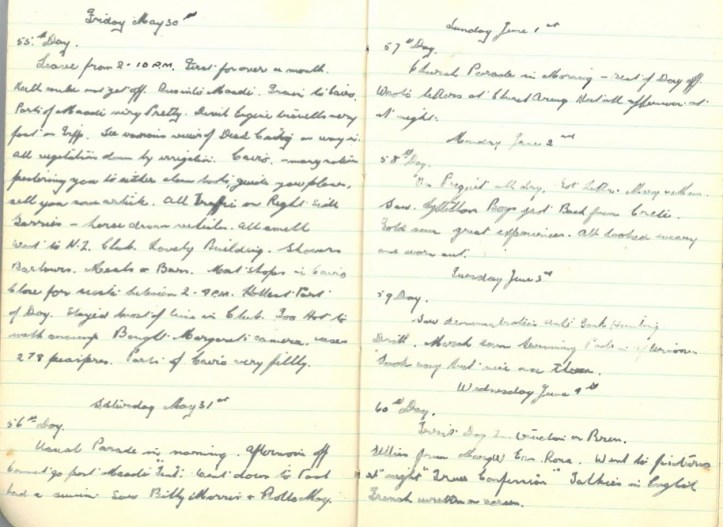 Friday May 30th
55th Day.
Leave from 2-10 P.M. First for over a month.
Keith unable to get off. Train to Cairo.
Parts of Maadi very Pretty. Diesel Engine travels very
fast on Trip. See various views of Dead City on way in.
All vegetation done by irrigation. Cairo, many natives
pestering you to either clean boots, guide you places,
sell you some article. All Traffic on Right side
Garries - horse drawn vehicles. All smell
Went to N.Z. Club. Lovely Building. Showers
Barbours. Meals & Bars. Most Shops in Cairo
Close for siesta between 2 - 4 P.M. Hottest Part
of Day. Stayed most of time in Club. Too Hot to
walk around Bought camera, case
278 piastres. Parts of Cairo very filthy.
Saturday May 31st
56th Day.
Usual Parade in morning. Afternoon off
Cannot go past Maadi Tent. Went down to Pool
had a swim Saw Billy Morris & May.
Sunday June 1st
57th Day.
Church Parade in Morning - rest of Day off.
Wrote letters at Hut all afternoon at
at night.
Monday June 2nd
58th Day.
On Picquet all day. Got letter Mary
Saw Lyttelton Boys just Back from Crete.
Told some great experiences. All looked weary
and worn out.
Tuesday June 3rd
59 Day.
Saw demonstration Anti Tank Hunting
Drill. March
Look very but
Wednesday June 4th
60th Day.
Day on Bren.
letter from Rona. Went to pictures
at night "True Confession" Talkies in English
French written on screen.